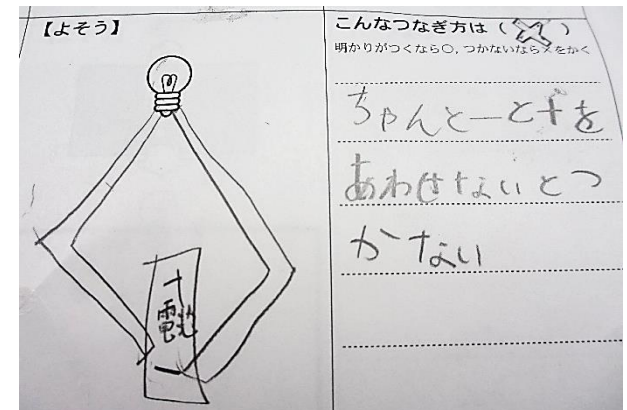 【よそう】
こんなつなぎ方は（×）
明かりがつくなら○，つかないなら×をかく
ちゃんと－と＋を
あわせないとつ
かない
＋
電池
－